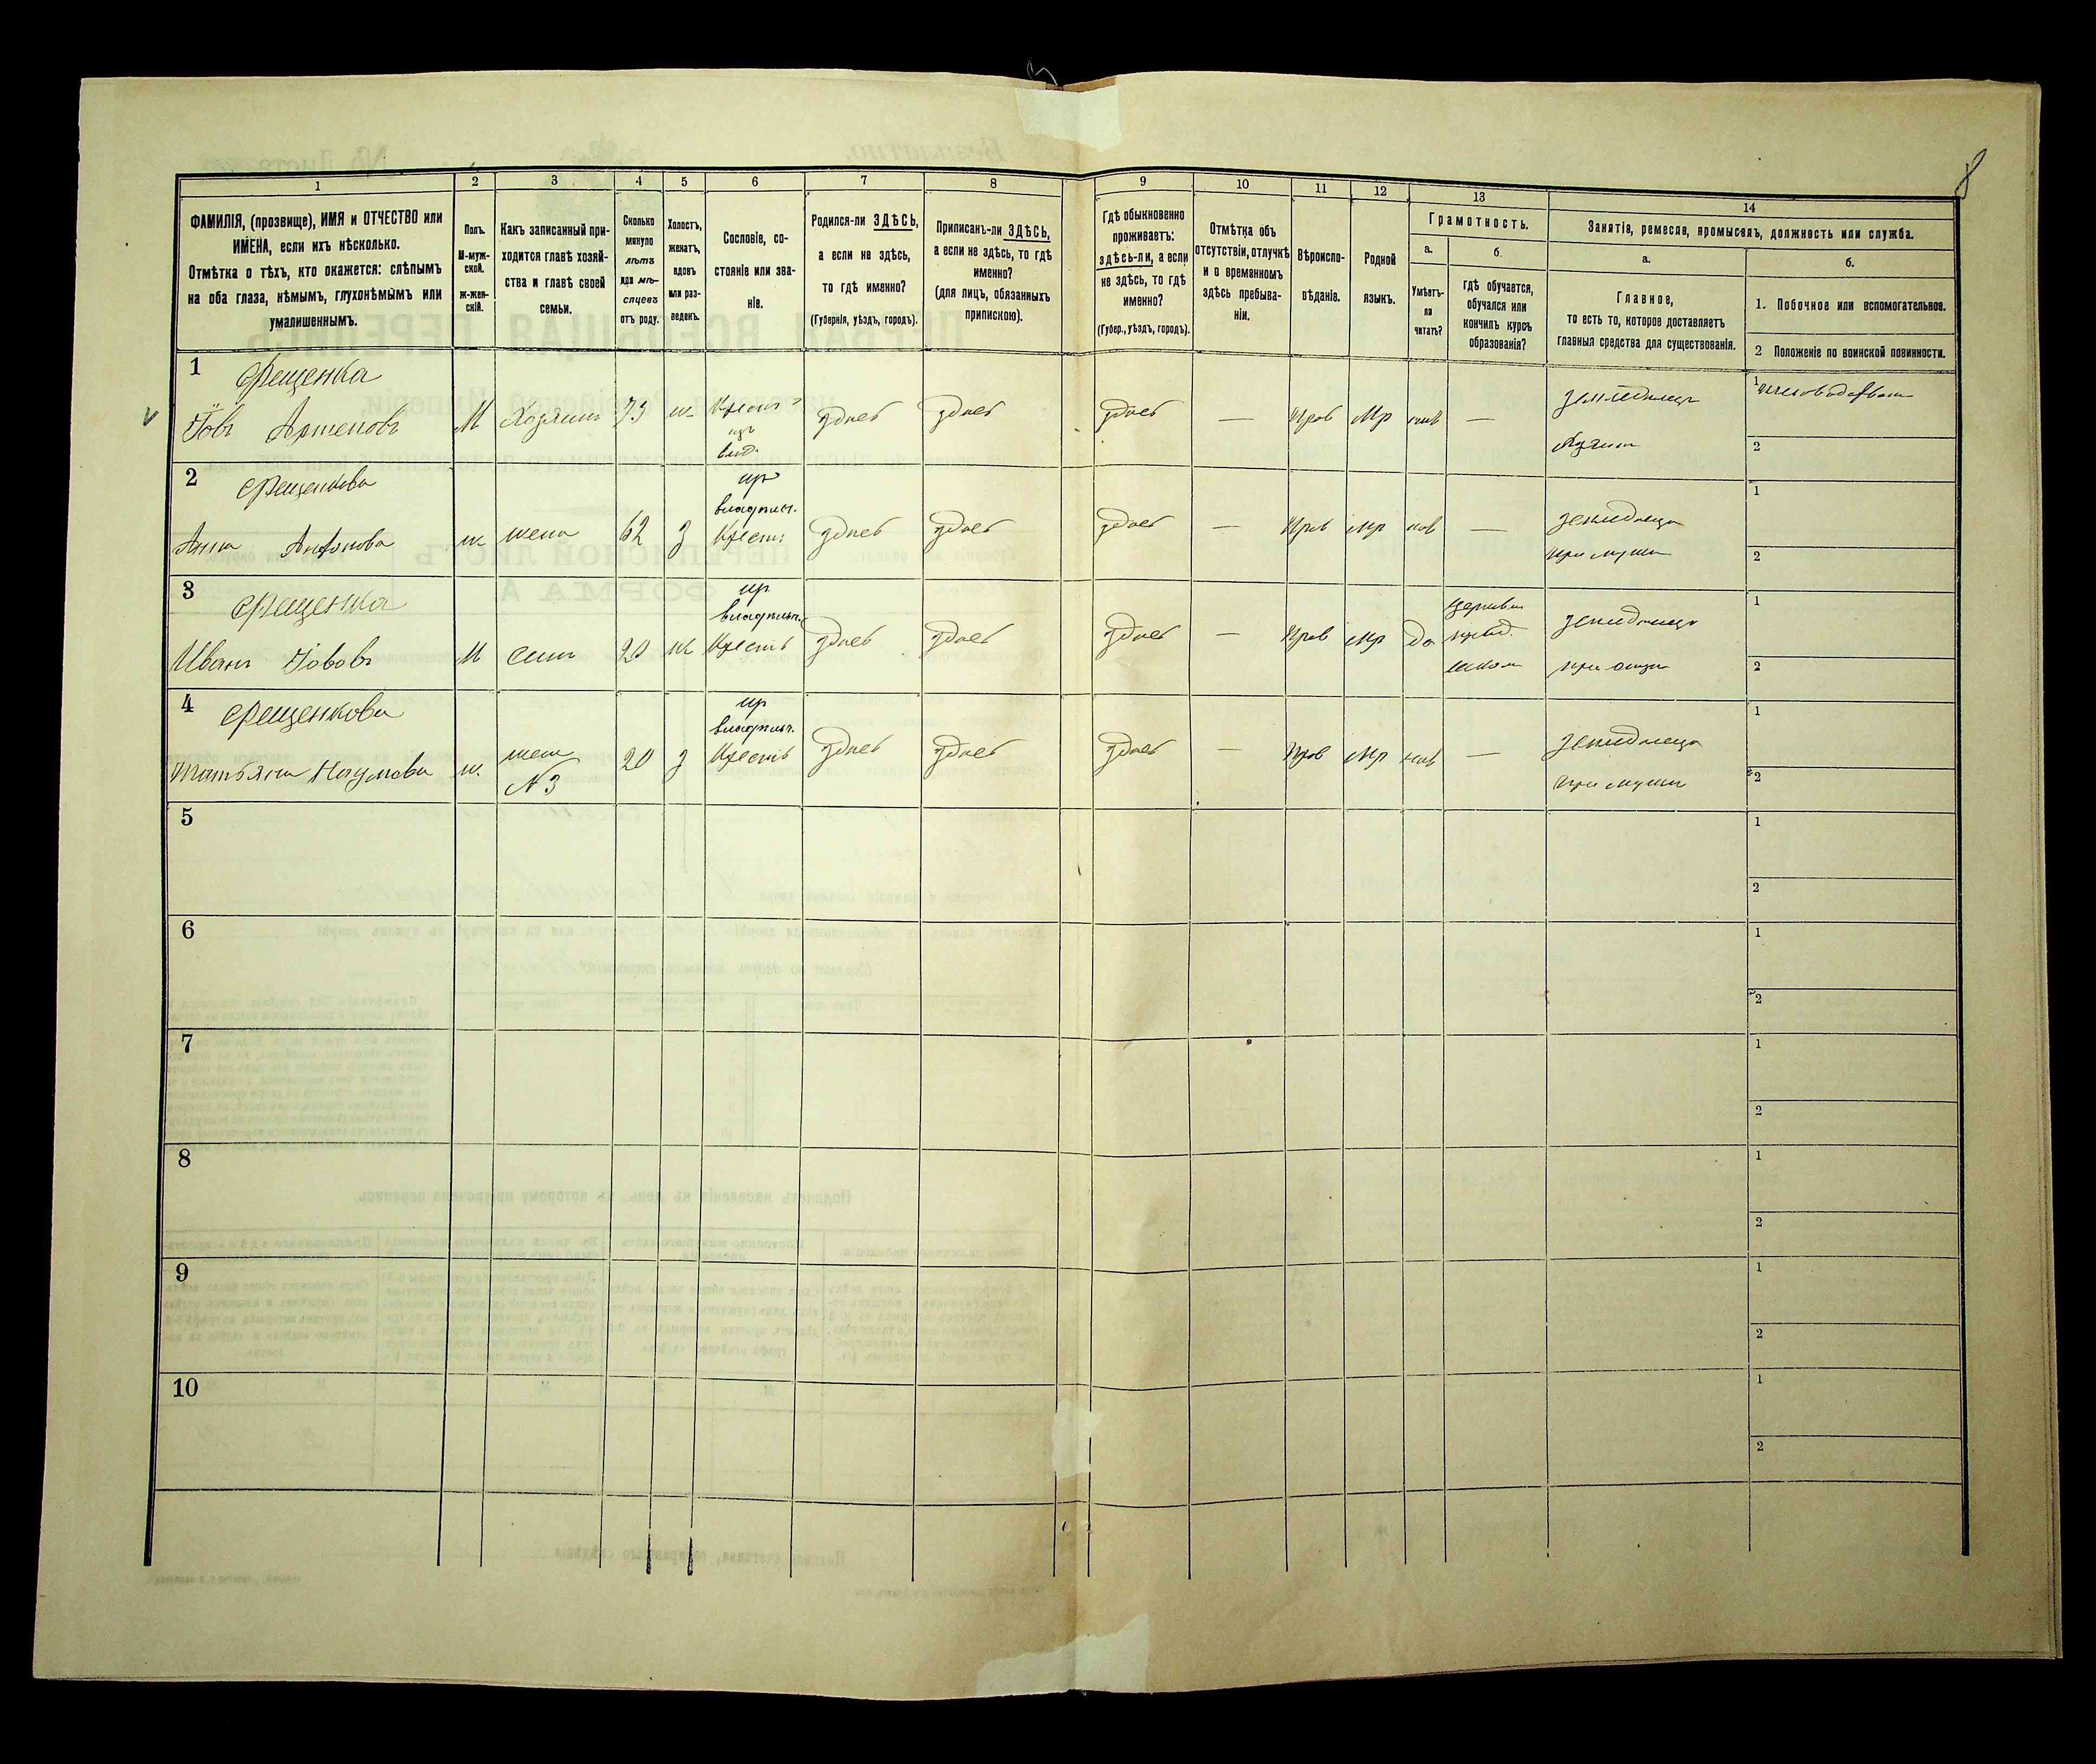 8
1
2
3
4
5
6
7
8
9
10
11
12
13
14
ФАМИЛІЯ, (прозвище), ИМЯ и ОТЧЕСТВО или
ИМЕНА, если ихъ нѣсколько.
Отмѣтка о тѣхъ, кто окажется: слѣпымъ
на оба глаза, нѣмымъ, глухонѣмымъ или
умалишеннымъ.
Полъ.
М-муж-
ской.
ж-жен-
скій.
Какъ записанный при-
ходится главѣ хозяй-
ства и главѣ своей
семьи.
Сколько
минуло
лѣтъ
или мѣ-
сяцевъ
отъ роду.
Холостъ,
женатъ,
вдовъ
или раз-
веденъ.
Сословіе, со-
стояніе или зва-
ніе.
Родился-ли ЗДѢСЬ,
а если не здѣсь,
то гдѣ именно?
(Губернія, уѣздъ, городъ).
Приписанъ-ли ЗДѢСЬ,
а если не здѣсь, то гдѣ
именно?
(для лицъ, обязанныхъ
припискою).
Гдѣ обыкновенно
проживаетъ:
здѣсь-ли, а если
не здѣсь, то гдѣ
именно?
(Губер., уѣздъ, городъ).
Отмѣтка объ
отсутствіи, отлучкѣ
и о временномъ
здѣсь пребыва-
ніи.
Вѣроиспо-
вѣданіе.
Родной
языкъ.
Грамотность.
а.
Умѣетъ-
ли
читать?
б.
Гдѣ обучается,
обучался или
кончилъ курсъ
образованія?
Занятіе, ремесло, промыселъ, должность или служба.
а.
Главное,
то есть то, которое доставляетъ
главныя средства для существованія.
б.
1. Побочное или вспомогательное.
2 Положеніе по воинской повинности.
1 Фещенка
Іовъ Артемовъ М Хозяинъ 73 ж Крест
изъ
влад.
здѣсь здѣсь здѣсь — Прав Мр нѣт —
земледѣлецъ
Хозяинъ
1
2
2 Фещенкова
Анна Антонова ж жена 62 з
из
владѣльч.
Крест
здѣсь здѣсь здѣсь — Прав Мр нѣт —
земледѣлица
при мужѣ
1
2
3 Фещенка
Иванъ Іововъ М сынъ 20 ж
из
владѣльч.
Крестъ
здѣсь здѣсь здѣсь — Прав Мр да
земледѣлецъ
при отцѣ
1
2
4 Фещенкова
Татьяна Наумова ж. жена
№ 3
20 з
из
владѣльч.
Крестъ
здѣсь здѣсь здѣсь — Прав Мр нѣт —
земледѣлица
при мужѣ
1
2
5
1
2
6
1
2
7
1
2
8
1
2
9
1
2
10
1
2